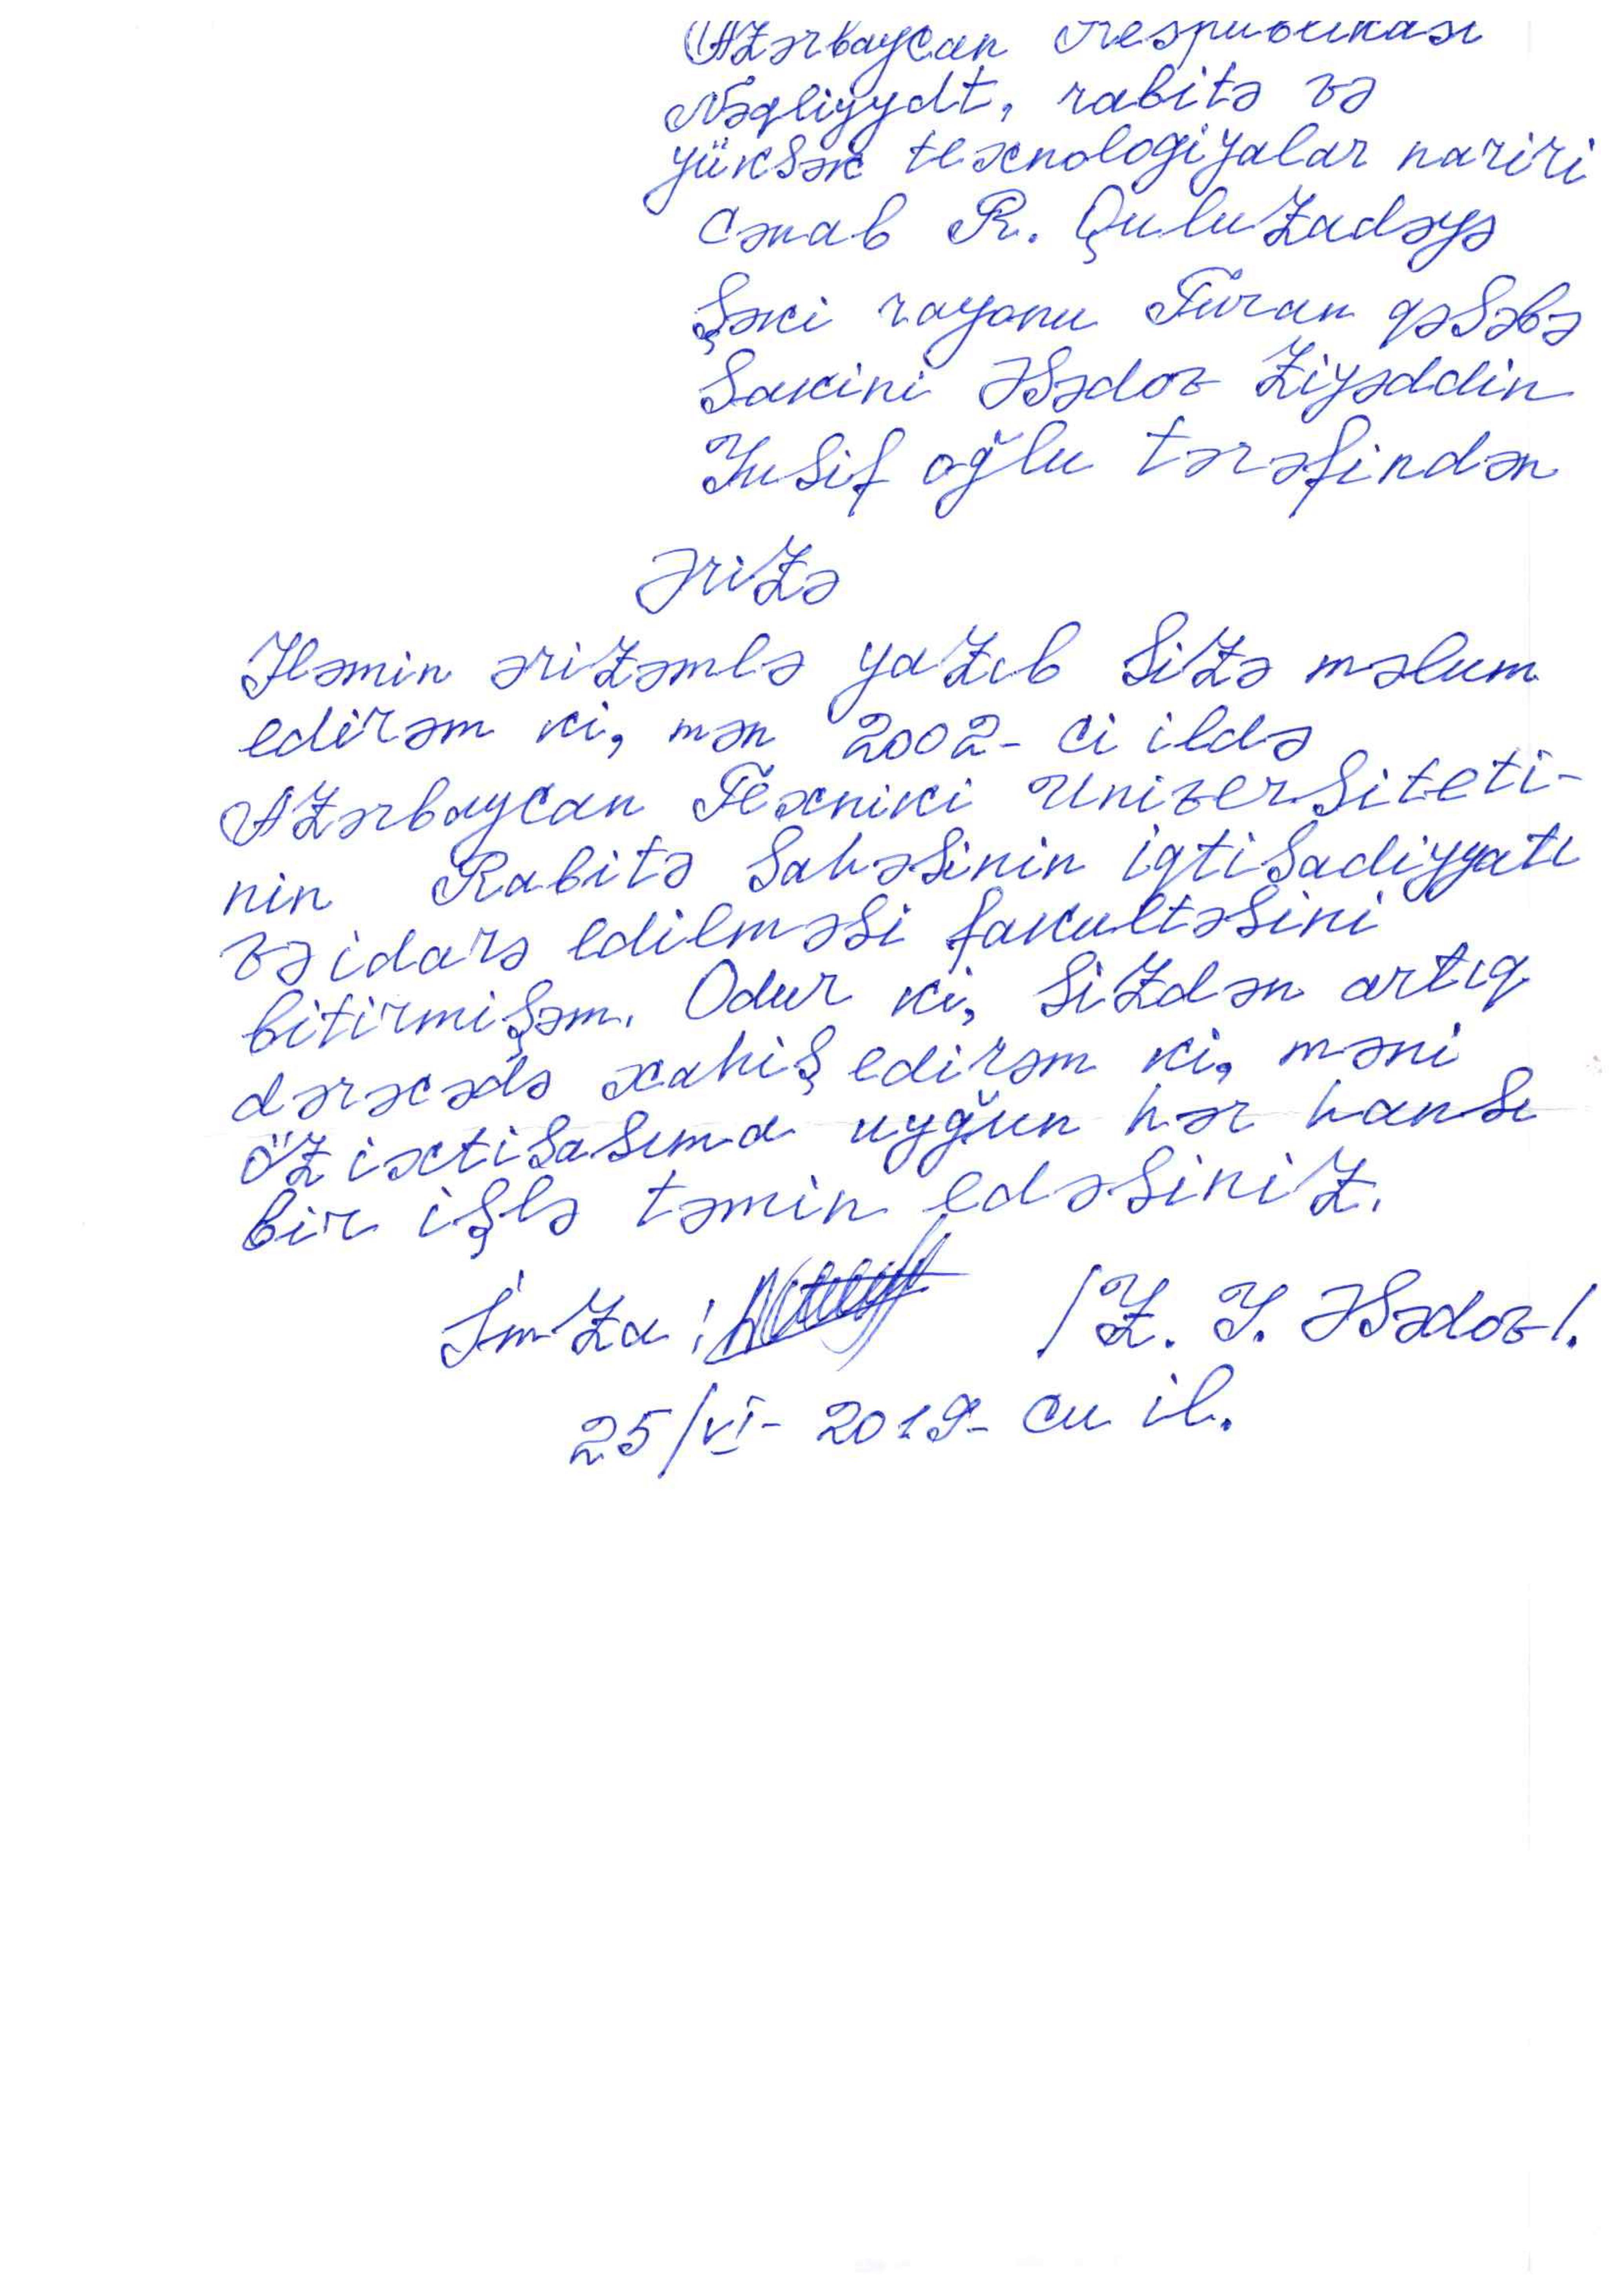 Azərbaycan Respublikası
Nəqliyyat, rabitə və
yüksək texnologiyalar naziri
cənab R. Quluzadəyə
Şəki rayonu Turan qəsəbə
sakini Əsədov Ziyəddin
Yusif oğlu tərəfindən
Ərizə
Həmin ərizəmlə yazıb Sizə məlum
edirəm ki, mən 2002-ci ildə
Azərbaycan Texniki Universiteti-
nin Rabitə sahəsinin iqtisadiyyatı
və idarə edilməsi fakultəsini
bitirmişəm. Odur ki, Sizdən artıq
dərəcədə xahiş edirəm ki, məni
öz ixtisasıma uyğun hər hansı
bir işlə təmin edəsiniz.
İmza: /Z. Y. Əsədov/.
25/VI-2019-cu il.